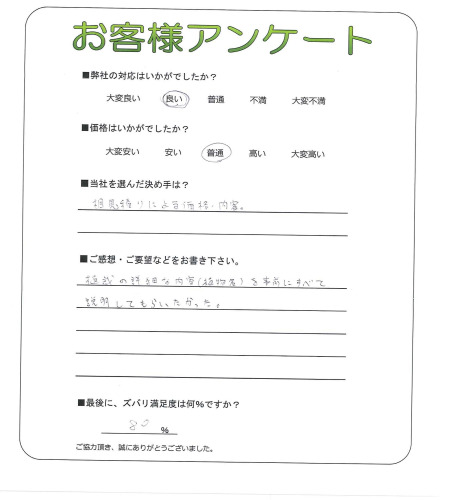 お客様アンケート
■弊社の対応はいかがでしたか？
大変良い 良い 普通 不満 大変不満
■価格はいかがでしたか？
大変安い 安い 普通 高い 大変高い
■当社を選んだ決め手は？
相見積りによる価格・内容。
■ご感想・ご要望などをお書き下さい。
植栽の詳細な内容(植物名)を事前にすべて
説明してもらいたかった。
■最後に、ズバリ満足度は何％ですか？
80 %
ご協力頂き、誠にありがとうございました。